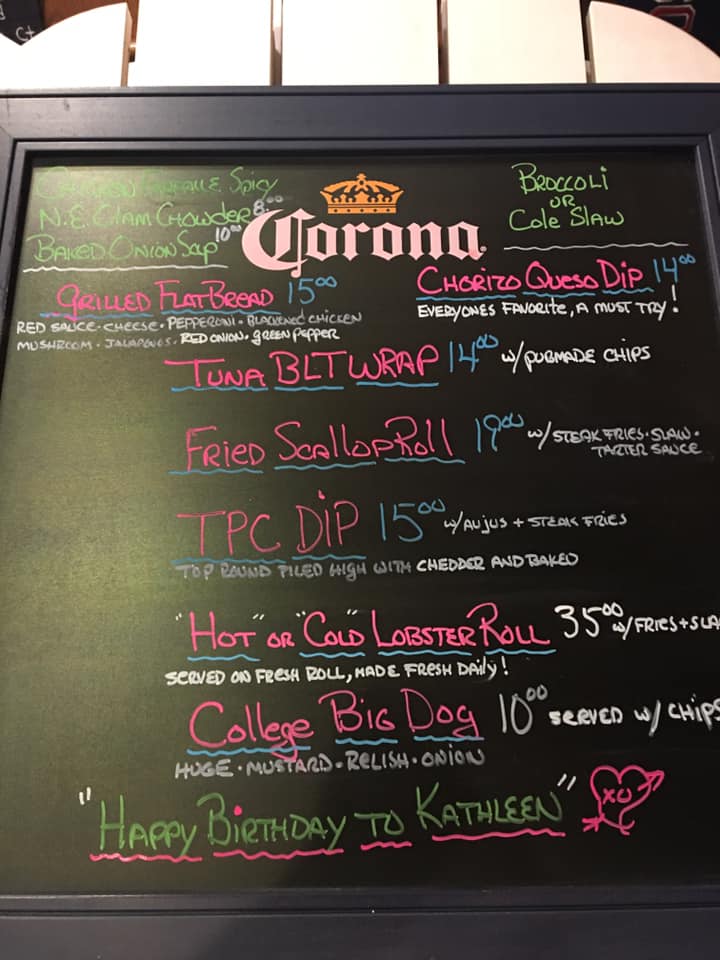 Spicy
N.E. Clam Chowder 8.00
Baked Onion Soup 10.00
Broccoli
or
Cole Slaw
Corona
Grilled FlatBread 15.00
Red Sauce · Cheese · Pepperoni · Blackened Chicken
Mushroom · Jalapenos · Red Onion · Green Pepper
Chorizo Queso Dip 14.00
Everyones Favorite, A Must Try!
Tuna BLT Wrap 14.00 w/ Pubmade Chips
Fried Scallop Roll 19.00 w/ Steak Fries · Slaw ·
Tarter Sauce
TPC Dip 15.00 w/ Aujus + Steak Fries
Top Round Piled High with Chedder and Baked
"Hot" or "Cold" Lobster Roll 35.00 w/ Fries + Sla
Served on Fresh Roll, Made Fresh Daily!
College Big Dog 10.00 Served w/ Chips
Huge · Mustard · Relish · Onion
"Happy Birthday to Kathleen"
XO